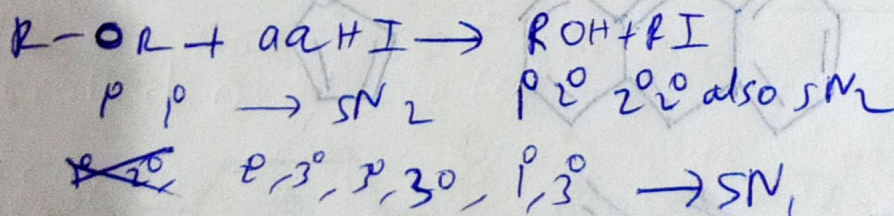 R-OR + aq HI → ROH + RI
1° 1° → SN2 1° 2° 2° 2° also SN2
2°, 3°, 3°, 3°, 1°, 3° → SN1